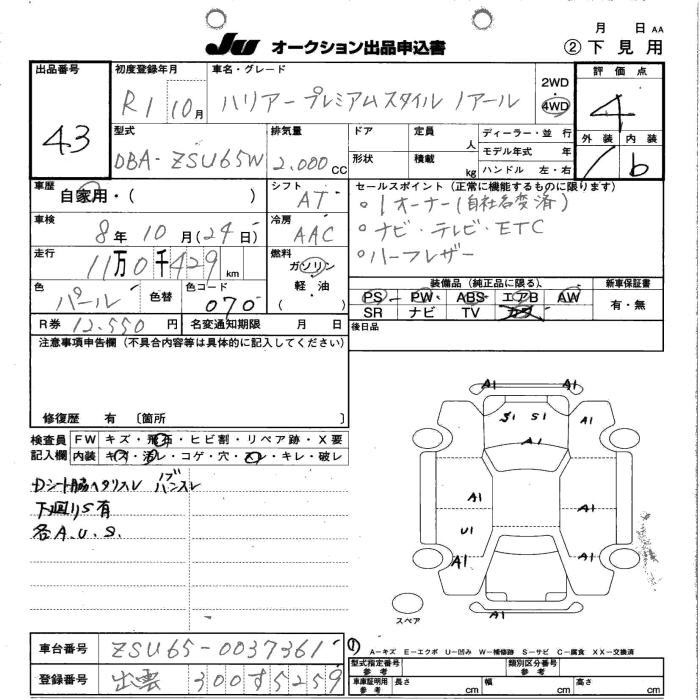 月 日 AA
JU オークション出品申込書
② 下見用
出品番号 43
初度登録年月 R1 10月
車名・グレード ハリアー プレミアムスタイルノアール
2WD
4WD
評価点 4
外装 内装
6
型式 DBA-ZSU65W
排気量 2.000 CC
ドア
定員 人
ディーラー・並行
モデル年式 年
形状
積載 kg
ハンドル 左・右
車歴 自家用・( )
シフト AT
セールスポイント (正常に機能するものに限ります)
○1オーナー(自社名変済)
○ナビ・テレビ・ETC
○ハーフレザー
車検 8年10月(24日)
冷房 AAC
走行 11万0千429 km
燃料 ガソリン
軽油
( )
色 パール
色替
色コード 070
装備品 (純正品に限る)
新車保証書
PS PW ABS エアB AW
SR ナビ TV カワ
有・無
R券 12.550円
名変通知期限 月 日
後日品
注意事項申告欄 (不具合内容等は具体的に記入してください)
修復歴 有 〔箇所 〕
検査員 FW キズ・飛石・ヒビ割・リペア跡・X要
記入欄 内装 キズ・汚レ・コゲ・穴・スレ・キレ・破レ
Dシート脇ヘタリスレ
下廻りS有
各A.U.S.
A1 A1
S1 S1 A1
A1
A1 A1
U1
A1 A1
A1
スペア
①
A-キズ E-エクボ U-凹み W-補修跡 S-サビ C-腐食 XX-交換済
車台番号 ZSU65-0037361
登録番号 出雲 300す5259
型式指定番号 参考
類別区分番号 参考
車庫証明用 参考 長さ cm 幅 cm 高さ cm